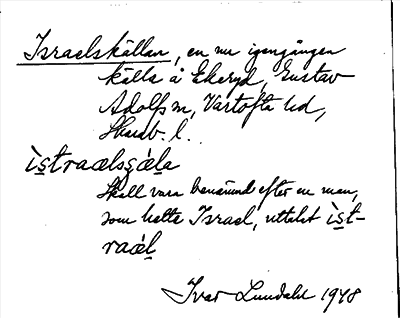 Israelskällan, en nu igengången
källa å Ekeryd, Gustav
Adolfs sn, Vartofta hd,
Skarab. l.
ìstraelsςǽla
Skall vara benämnd efter en man,
som hette Israel, uttalat ìst-
raél
Ivar Lundahl 1948